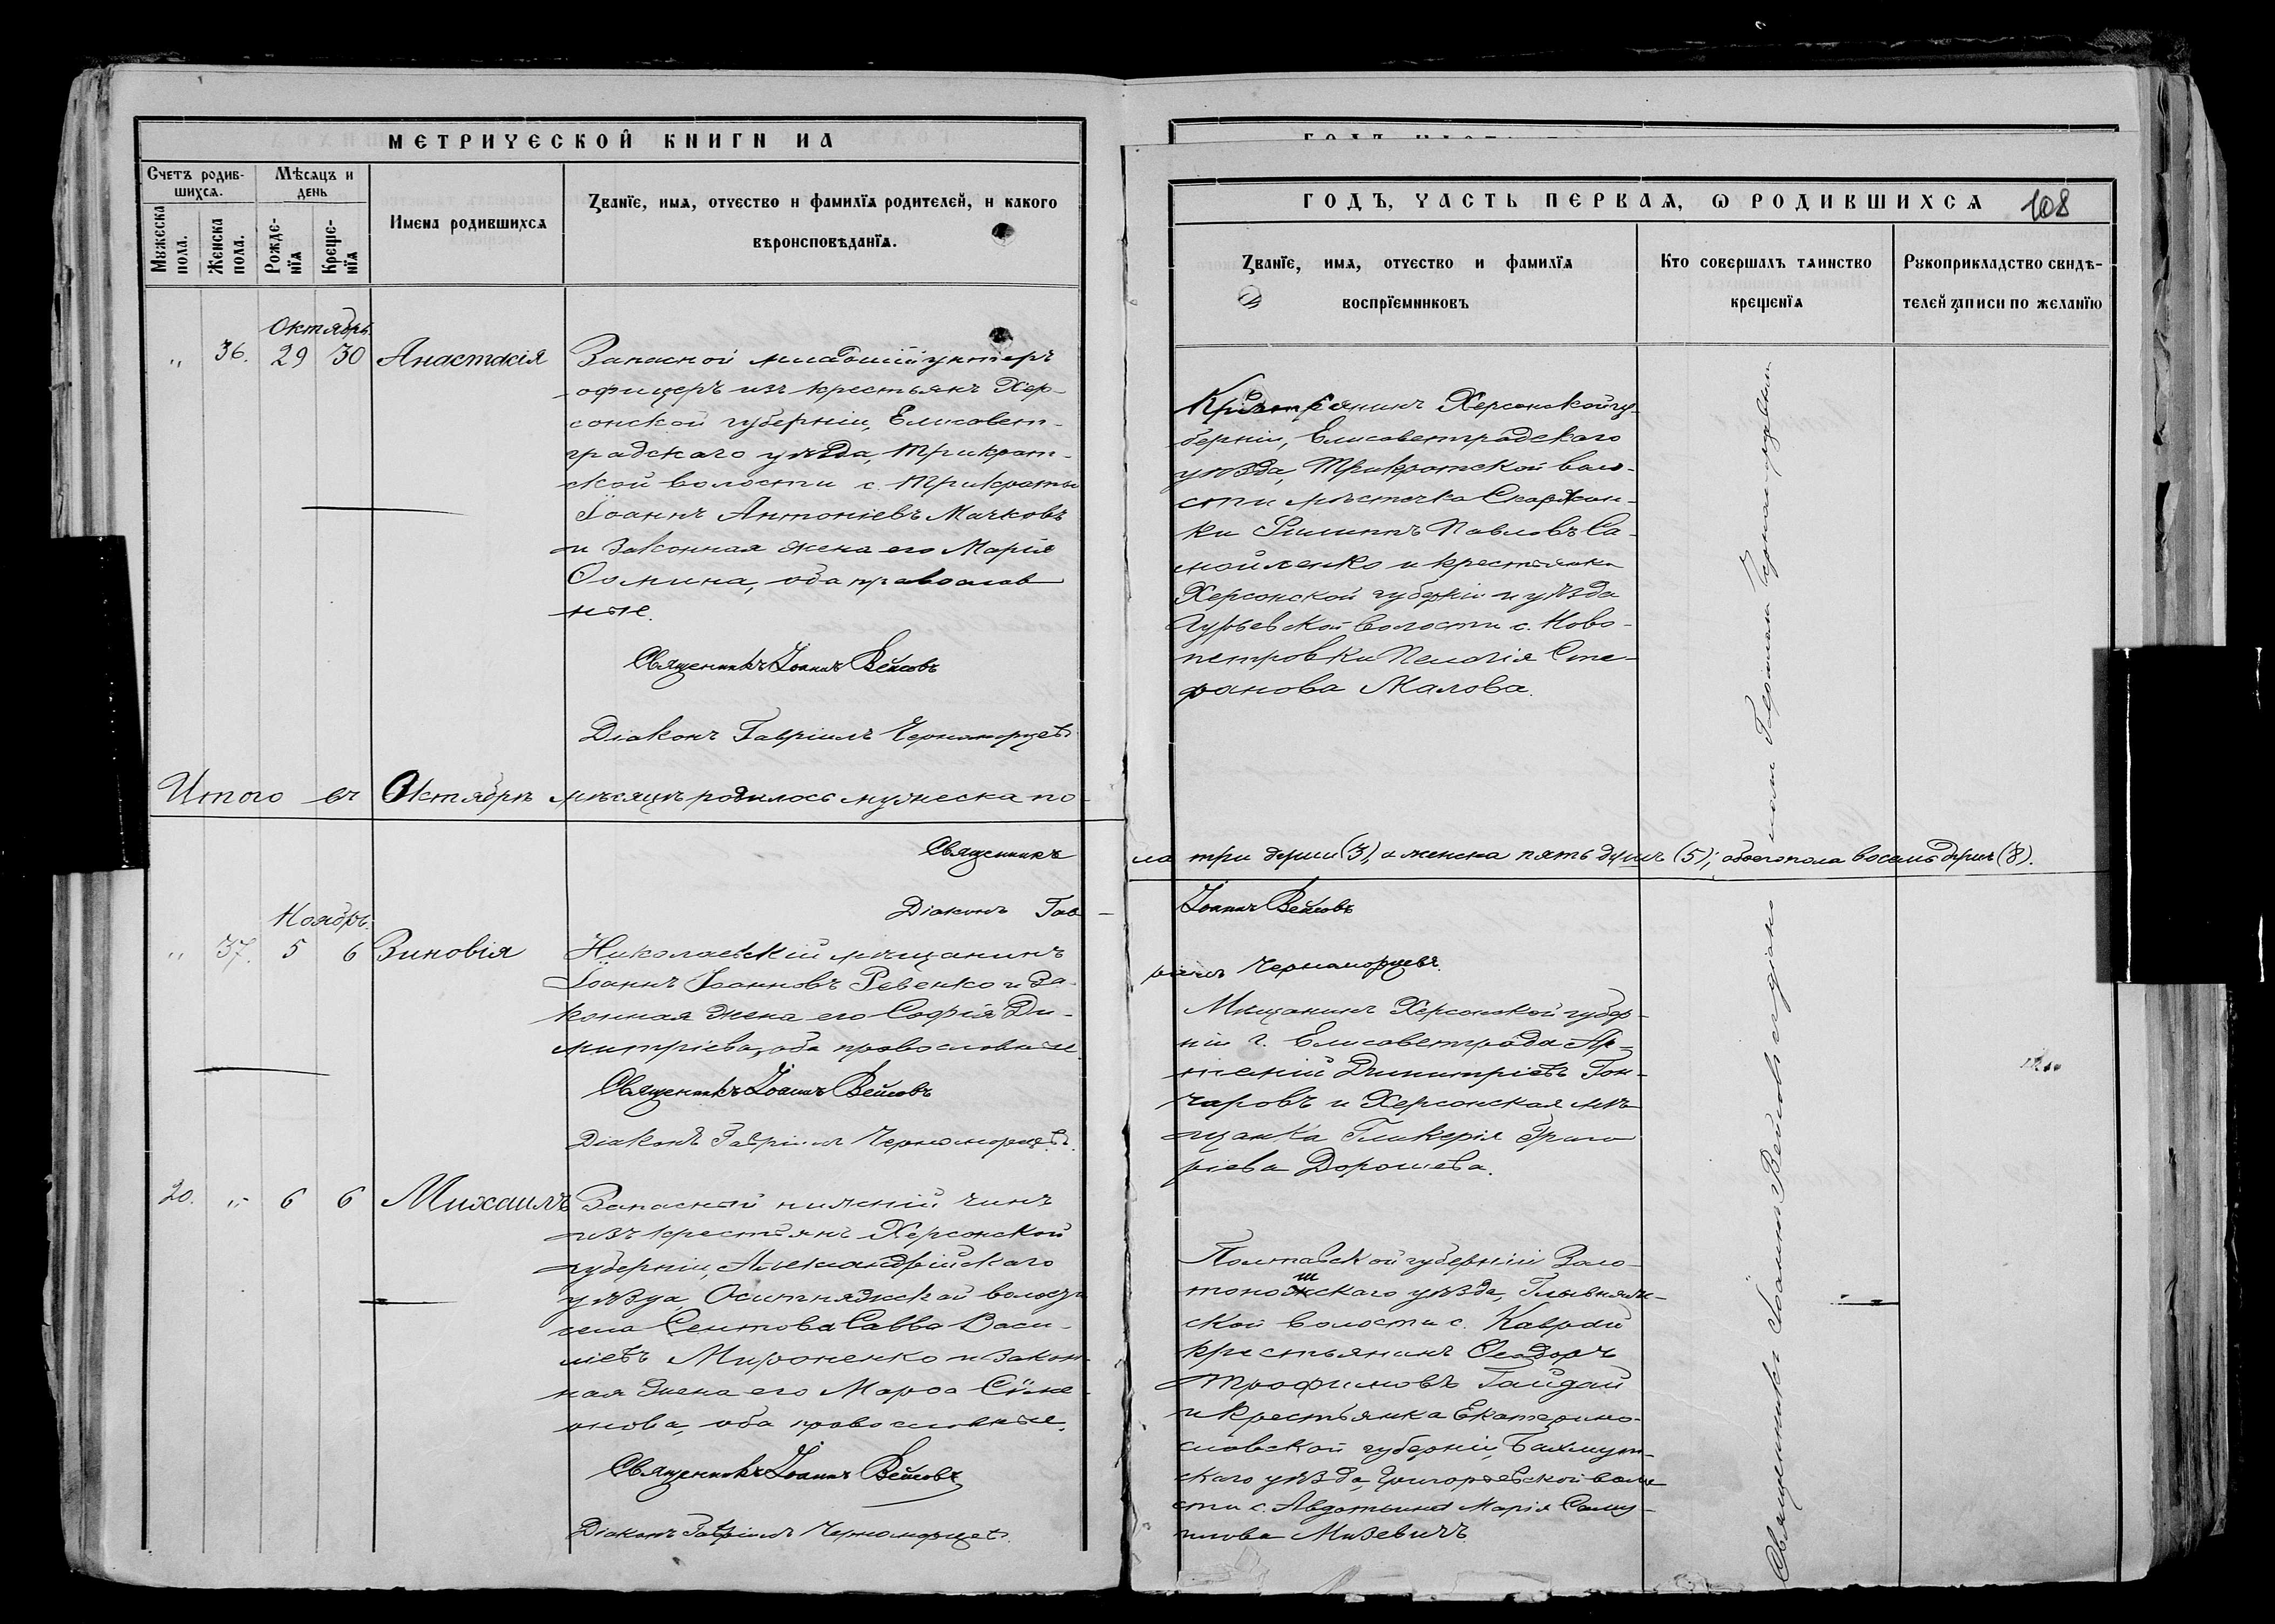 МЕТРИЧЕСКОЙ КНИГИ НА
Счетъ родив-
шихся.
Мѣсяцъ и
день
Имена родившихся
Званїе, имя, отчество и фамилїя родителей, и какого
вѣроисповѣданїя.
Мужеска
пола.
Женска
пола.
Рожде-
нїя
Креще-
нїя
Октябрь
„ 36. 29 30 Анастасія
Запасной младшій унтеръ
офицеръ изъ крестьянъ Хер-
сонской губерніи, Елисавет-
градскаго уѣзда, Трикрат-
ской волости с. Трикраты
Іоаннъ Антоніевъ Мачковъ
и законная жена его Марія
Ѳомина, оба православ
ные.
Священникъ Іоаннъ Вейсовъ
Діаконъ Гавріилъ Черноморцевъ
Итого въ Октябрѣ мѣсяцѣ родилось мужеска по-
Священникъ
Діаконъ Гав-
Ноябрь.
„ 37. 5 6 Зиновія
Николаевскій мѣщанинъ
Іоаннъ Іоанновъ Ревенко и за-
конная жена его Софія Ди-
митріева, оба православные.
Священникъ Іоаннъ Вейсовъ
Діаконъ Гавріилъ Черноморцевъ.
20. „ 6 6 Михаилъ
Запасной нижній чинъ
изъ крестьянъ Херсонской
губерніи, Александрійскаго
уѣзда, Оситняжской волости
села Сентова Савва Васи-
ліевъ Мироненко и закон-
ная жена его Марѳа Сѵме-
онова, оба православные.
Священникъ Іоаннъ Вейсовъ
Діаконъ Гавріилъ Черноморцевъ.
ГОДЪ, ЧАСТЬ ПЕРВАЯ, Ѡ РОДИВШИХСЯ 108
Званїе, имя, отчество и фамилїя
воспрїемниковъ
Кто совершалъ таинство
крещенїя
Рукоприкладство свидѣ-
телей записи по желанїю
Крестьянинъ Херсонской гу-
берніи, Елисаветградскаго
уѣзда, Трикратской воло-
сти мѣстечка Скаржин-
ки Филиппъ Павловъ Са-
мойленко и крестьянка
Херсонской губерніи и уѣзда
Гурьевской волости с. Ново-
петровки Пелагія Сте-
фанова Малова.
ла три души (3), а женска пять душъ (5); обоего пола восемь душъ (8).
Іоаннъ Вейсовъ
ріилъ Черноморцевъ.
Мѣщанинъ Херсонской губер-
ніи г. Елисаветграда Ар-
сеній Димитріевъ Гон-
чаровъ и Херсонская мѣ-
щанка Гликерія Григо
ріева Дорошева.
Полтавской губерніи Золо-
тоношскаго уѣзда,
ской волости с. Каврай
крестьянинъ Ѳеодоръ
Трофимовъ Гайдай
и крестьянка Екатерино-
славской губерніи, Бахмут-
скаго уѣзда, Григорьевской воло
сти с. Авдотьина Марія Саму-
илова Мизевичъ.
Священникъ Іоаннъ Вейсовъ съ діакономъ